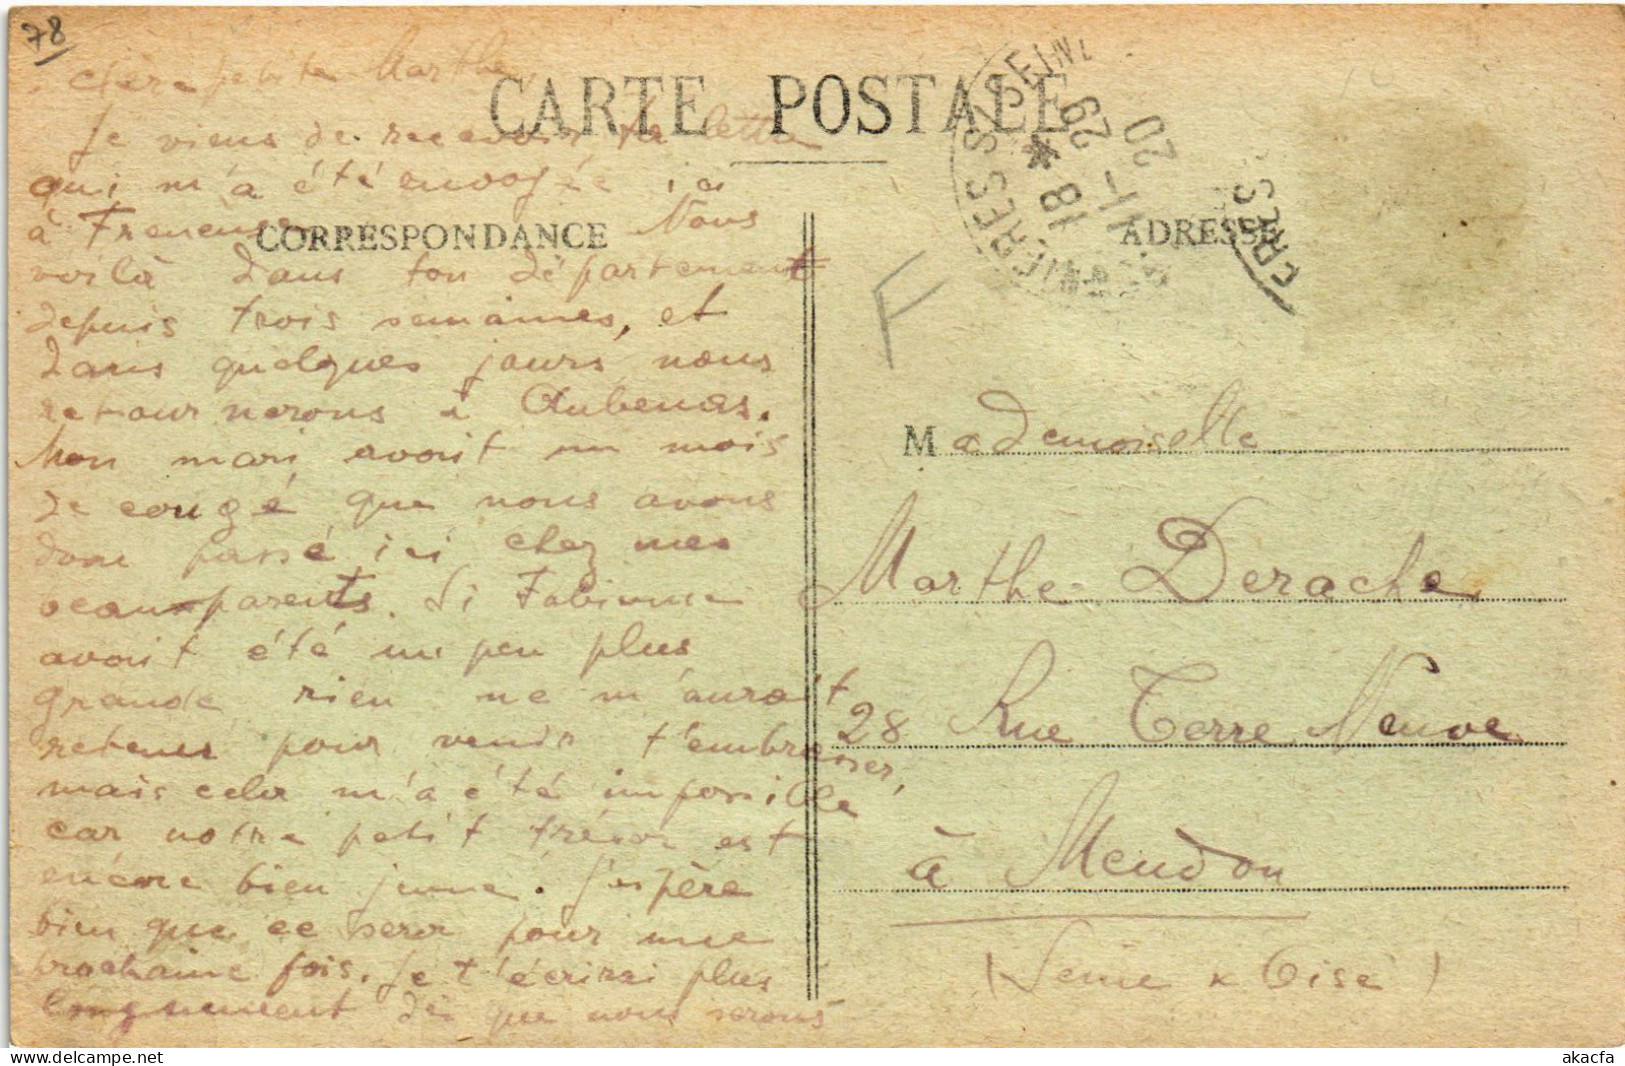 78
Chère petite Marthe,
CARTE POSTALE
Je viens de recevoir ta lettre
qui m'a été envoyée ici
à Freneuse Nous
CORRESPONDANCE
voilà dans ton département
depuis trois semaines, et
dans quelques jours nous
retournerons à Aubenas.
Mon mari avait un mois
de congé que nous avons
donc passé ici chez mes
beaux parents. Si Fabienne
avait été un peu plus
grande rien ne m'aurait
retenue pour venir t'embrasser,
mais cela m'a été impossible
car notre petit trésor est
encore bien jeune. J'espère
bien que ce sera pour une
prochaine fois. Je t'écrirai plus
longuement dès que nous serons
RES S/SEINE
*
18
29
-11
20
ADRESSE
T
Mademoiselle
Marthe Derache
28 Rue Terre Neuve
à Meudon
(Seine & Oise)
akacfa